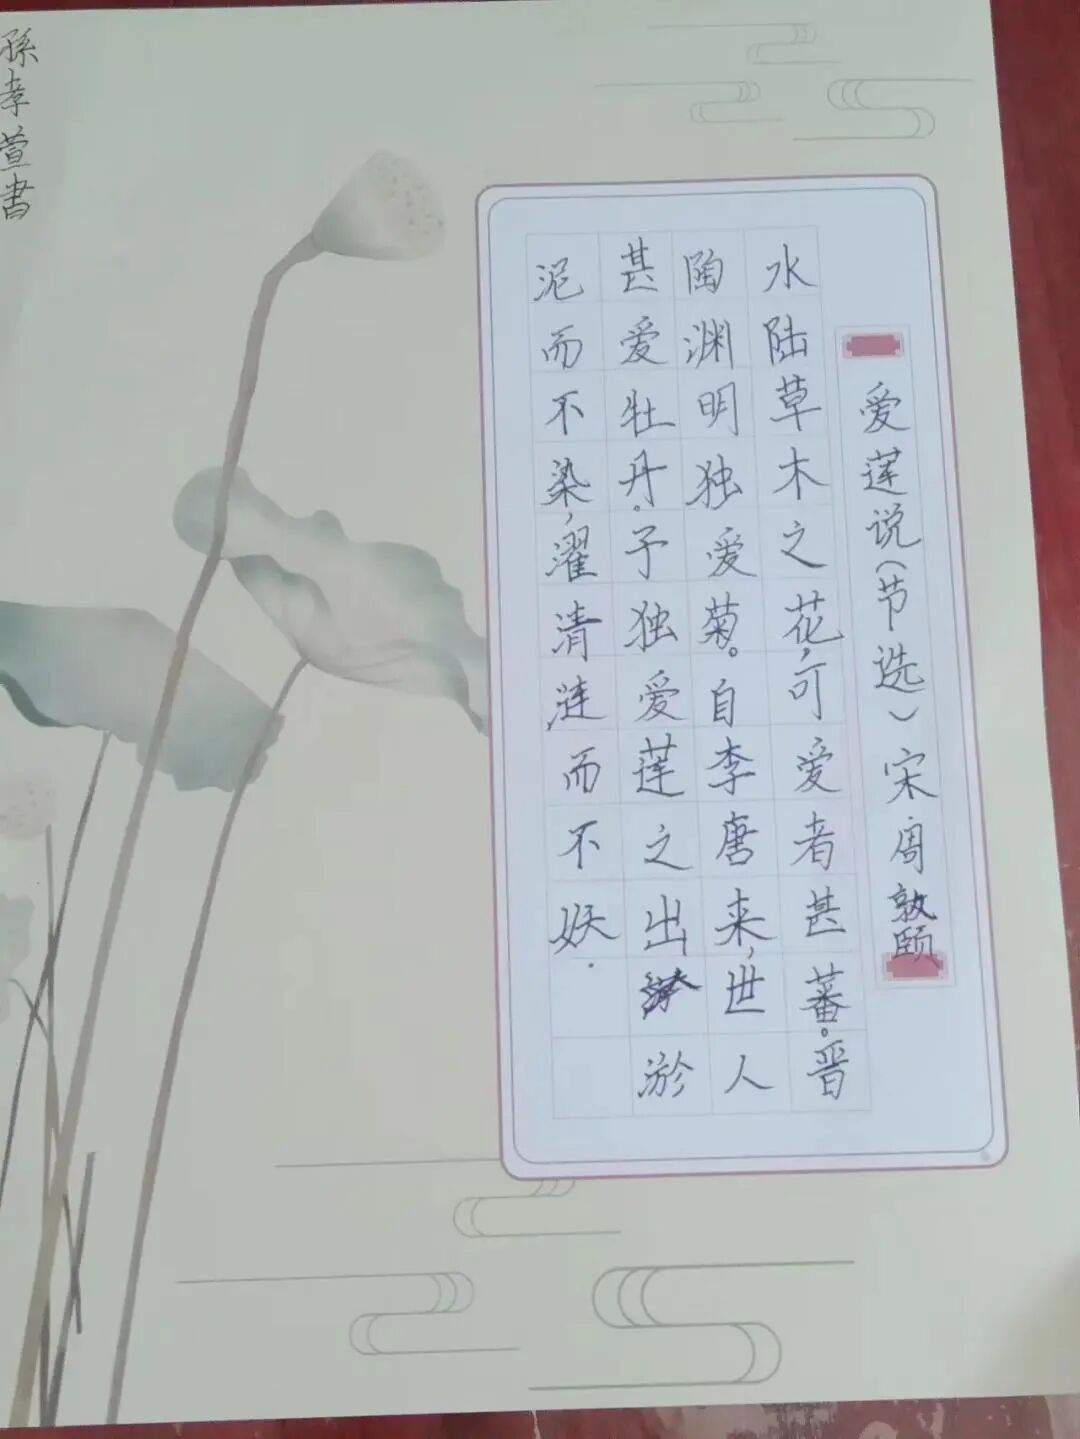 爱莲说(节选)宋周敦颐
水陆草木之花,可爱者甚蕃。晋
陶渊明独爱菊。自李唐来,世人
甚爱牡丹。予独爱莲之出淤
泥而不染,濯清涟而不妖.
孫孝萱書